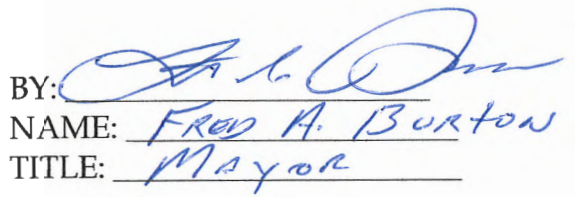 BY:
NAME: FRED A. BURTON
TITLE: MAYOR